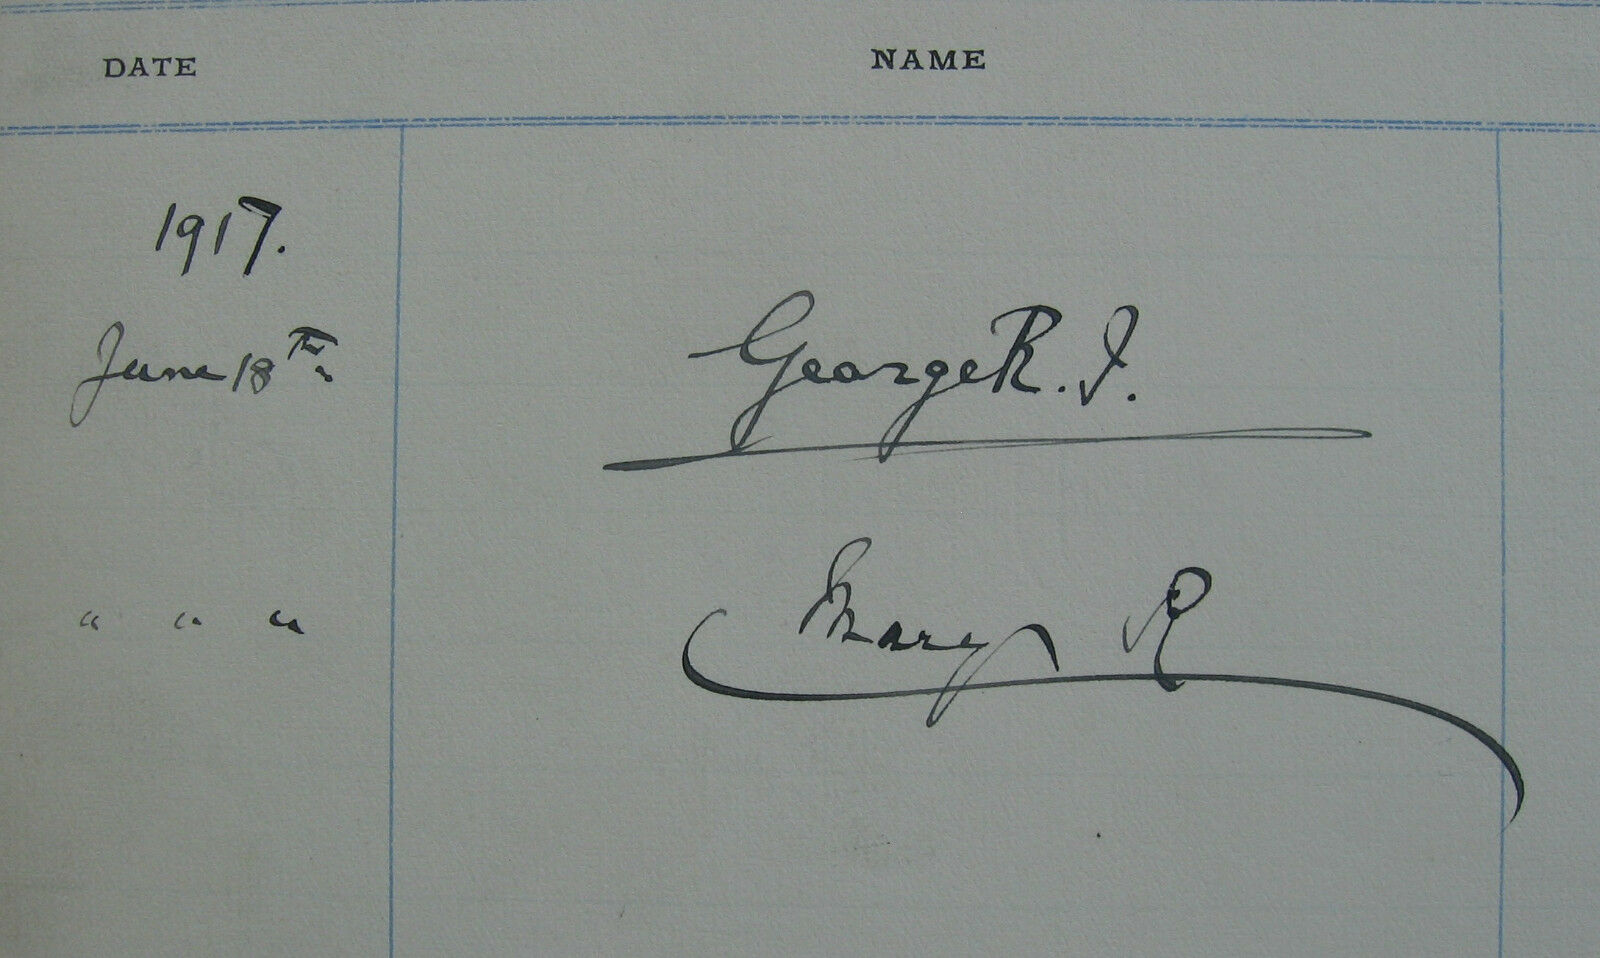 DATE NAME
1917.
June 18th. George R. I.
" " " Mary R